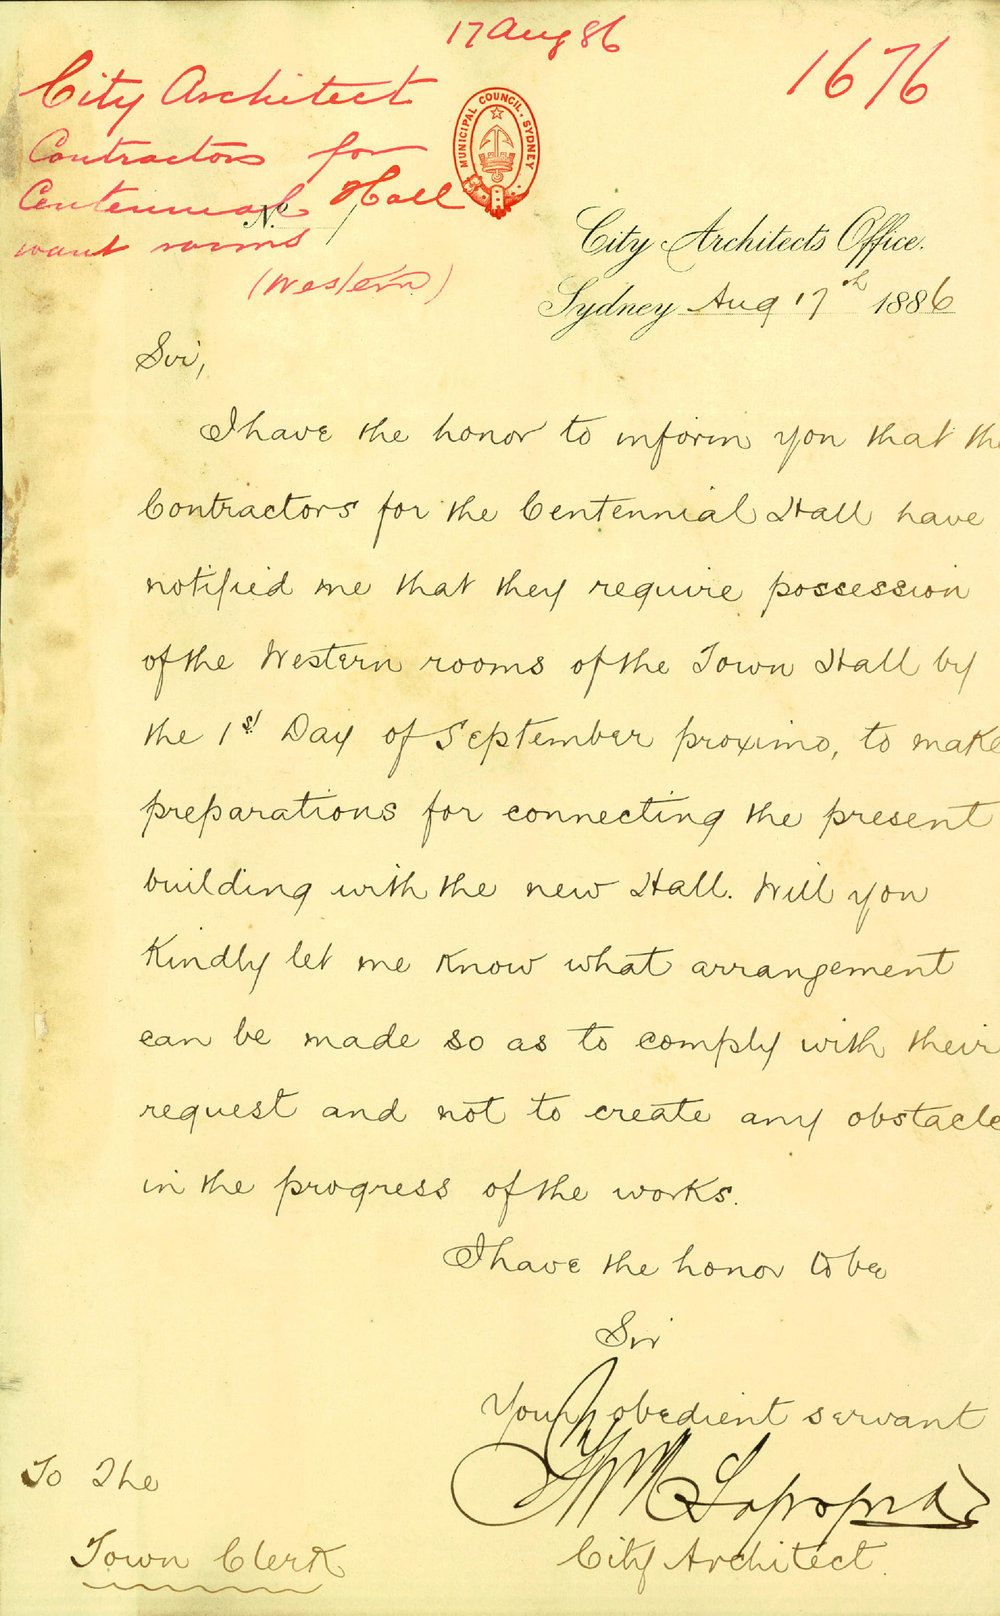 17 Aug 86
1676
City Architect
Contractors for
Centennial Hall
want rooms
(Western)
MUNICIPAL COUNCIL, SYDNEY
No.
City Architects Office.
Sydney Aug 17th 1886
Sir,
I have the honor to inform you that the
Contractors for the Centennial Hall have
notified me that they require possession
of the Western rooms of the Town Hall by
the 1st Day of September proximo, to make
preparations for connecting the present
building with the new Hall. Will you
kindly let me know what arrangement
can be made so as to comply with their
request and not to create any obstacle
in the progress of the works.
I have the honor to be
Sir
Your obedient servant
City Architect.
To The
Town Clerk